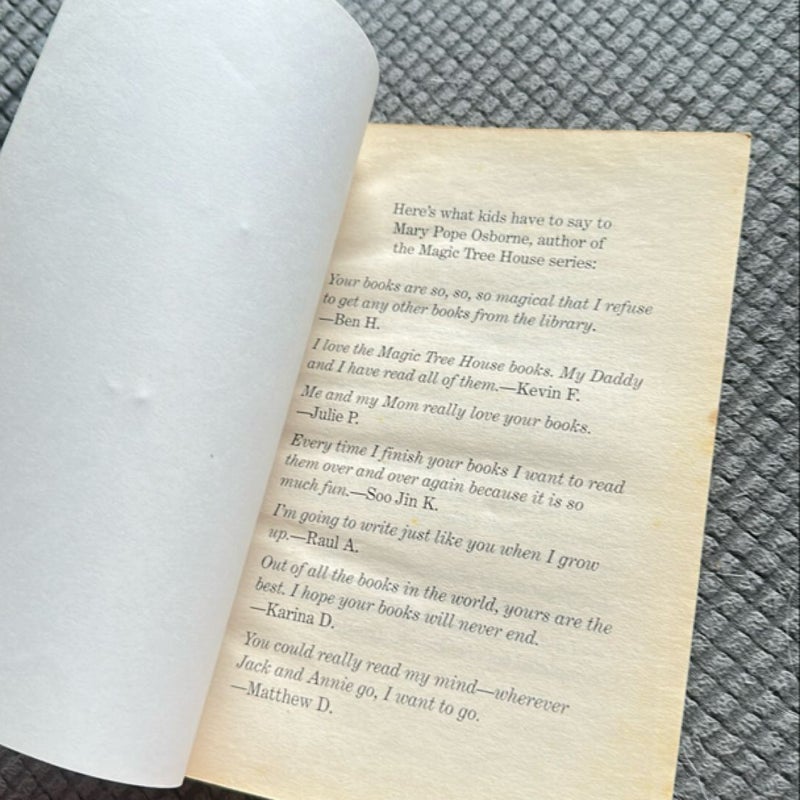 Here's what kids have to say to
Mary Pope Osborne, author of
the Magic Tree House series:
Your books are so, so, so magical that I refuse
to get any other books from the library.
—Ben H.
I love the Magic Tree House books. My Daddy
and I have read all of them.—Kevin F.
Me and my Mom really love your books.
—Julie P.
Every time I finish your books I want to read
them over and over again because it is so
much fun.—Soo Jin K.
I'm going to write just like you when I grow
up.—Raul A.
Out of all the books in the world, yours are the
best. I hope your books will never end.
—Karina D.
You could really read my mind—wherever
Jack and Annie go, I want to go.
—Matthew D.